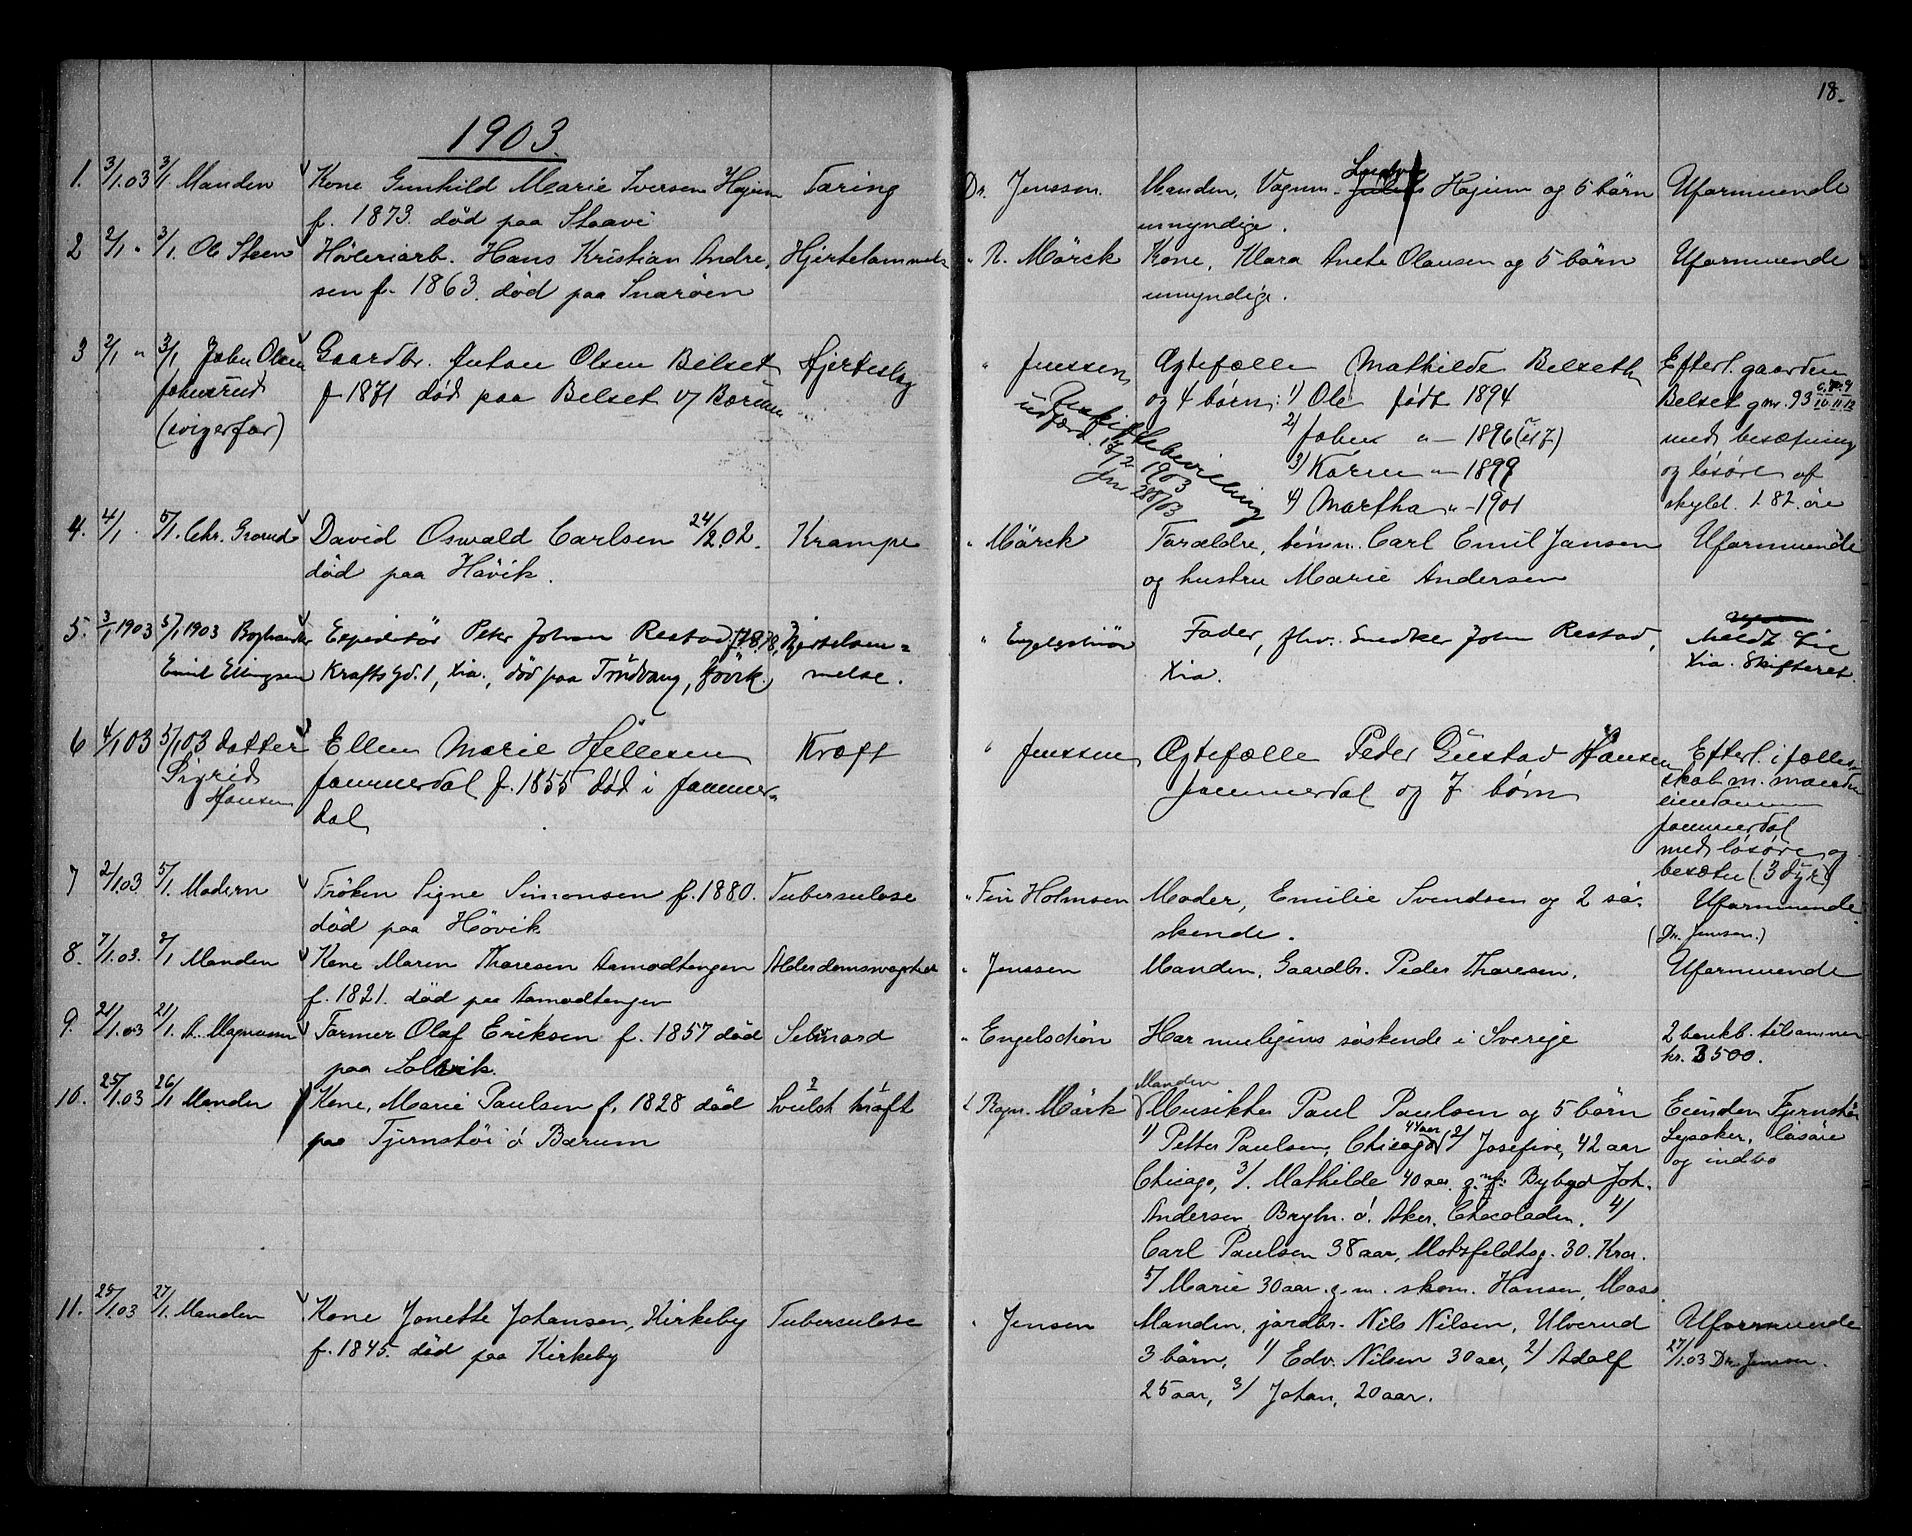 18.
1903.
1. 3/1.03 3/1. Manden Kone Gunhild Marie Iversen Hojum Tæring Dr. Jenssen. Manden, Vognm. Ludvig Hojum og 6 børn Uformuende
f. 1873. død paa Staavi umyndige.
2 2/1 " 3/1. Ole Steen Høvleriarb. Hans Kristian Andre, Hjertelammelse " R. Mörck Kone, Klara Anete Olausen og 5 børn Uformuende
sen f. 1863. død paa Snarøen umyndige.
3 2/1 " 3/1 Johan Olsen Gaardbr. Anton Olsen Belset Hjerteslag " Jenssen Ægtefælle Mathilde Belseth Efterl. gaarden
Johnsrud f 1871 død paa Belset v/ Bærum og 4 børn: 1) Ole født 1894 Belset gnr. 93
(svigerfar) Uskiftebevilling 2) Johan " - 1896 med besætning
udfærd. 13/2 1903 3) Karen " - 1899 og løsøre af
Jnr 288/03 4) Martha " - 1901 skyld. 1.82. øre
4. 4/1 - 5/1. Chr. Grorud David Oswald Carlsen 24/2.02. Krampe " Mörck Forældre, Carl Emil Jansen Uformuende
død paa Hövik. og hustru Marie Andersen
5. 3/1 1903 5/1 1903 Boghandler Expeditör Peter Johan Restad f. 1878, Hjertelam= " Engelschiøn Fader, fhv. Snedker John Restad, Meldt Lie
Emil Ellingsen Krafts Gd. 1, Xia., død paa Trudvang, Høvik. melse. Xia. Xia. Skifteret.
6 4/1 03 5/1 03 datter Ellen Marie Hellesen Kræft " Jenssen Ægtefælle Peder Gustad Hansen Efterl. i fælles-
Sigrid Jammerdal f. 1855 død i Jammer- Jammerdal og 7 børn skab m. manden
Hansen dal eiendommen
Jammerdal
med løsøre og
besætn (3 dyr)
7 2/1.03 5/1. Modern Frøken Signe Simonsen f. 1880. Tuberculose " Fin Holmsen Moder, Emilie Svendsen og 2 sø- Uformuende
død paa Høvik skende. (Dr. Jenssen.)
8. 7/1.03. 8/1 Manden Kone Maren Thoresen Aamodtengen Alderdomssvaghed " Jenssen Manden, Gaardbr. Peder Thoresen. Uformuende
f. 1821. død paa Aamodtengen
9. 21/1.03 21/1. A. Magnussen Farmer Olaf Eriksen f. 1857 død Selvmord " Engelschiøn Har muligens søskende i Sverige 2 bankb. tilsammen
paa Solvik. kr. 3500.
10. 25/1.03 26/1 Manden Kone, Marie Paulsen f. 1828 død Svulst kræft Ragn. Mörk Manden Musikter Paul Paulsen og 5 børn Eiendom Fjernstøi
paa Fjernstøi ö Bærum 1) Petter Paulsen, Chicago 44 aar 2) Josefine, 42 aar Lysaker, løsøre
Chicago, 3/. Mathilde 40 aar. g. m. Joh. og indbo
Andersen, Brybn. ö. Aker. Chocoladen. 4/
Carl Paulsen 38 aar, Motzfeldtsg. 30. Kra.
5/ Marie 30 aar. g. m. skom. Hansen, Moss.
11. 25/1.03 27/1. Manden Kone Jonette Johansen, Kirkeby Tuberculose " Jensen Manden, jordbr. Nils Nilsen, Ulverud Uformuende
f. 1845. død paa Kirkeby 3 børn, 1/ Edv. Nilsen 30 aar, 2/ Adolf 27/1.03 Dr. Jenssen.
25 aar, 3/ Johan, 20 aar.